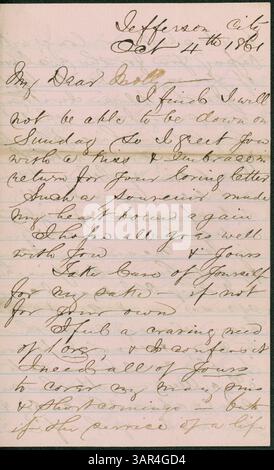 Jefferson City
Oct 4th 1861
My Dear
I find I will
not be able to be down on
Sunday So I greet you
with a kiss & embrace in
return for your loving letter
Such a souvenir made
my heart bound again
I hope all go as well
with you & yours
Take Care of yourself
for my sake - if not
for your own
I feel a craving need
of Love, & I confess it
I need all of yours
to cover my many sins
& shortcomings - but
if the service of a life
alamy
2AR4GD4